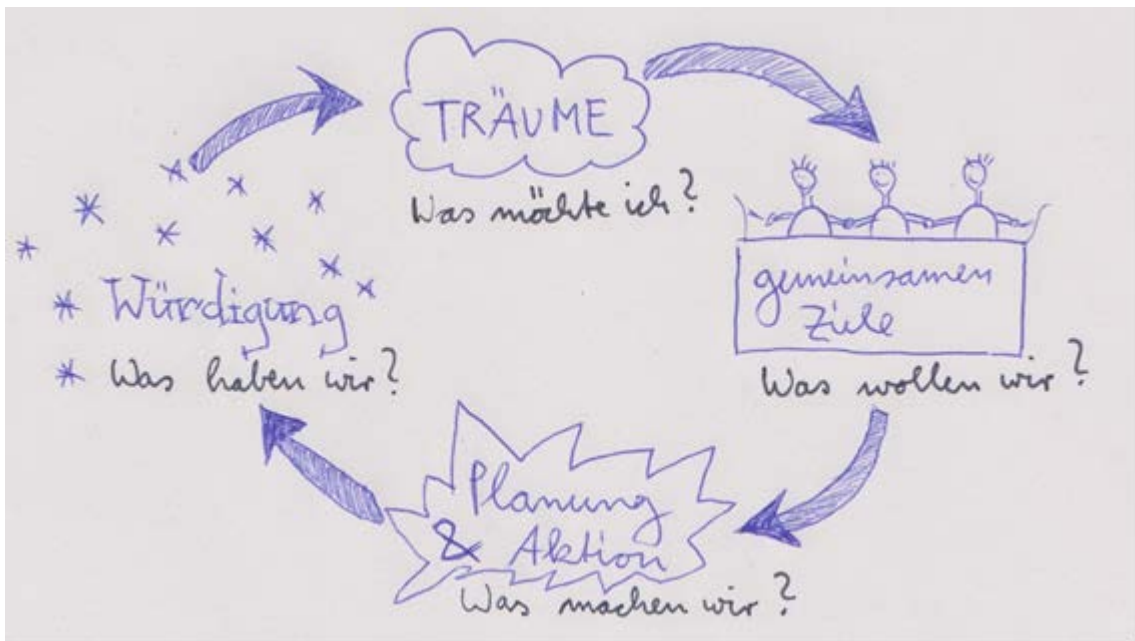 TRÄUME
Was möchte ich?
gemeinsamen
Ziele
Was wollen wir?
Planung
& Aktion
Was machen wir?
Würdigung
Was haben wir?